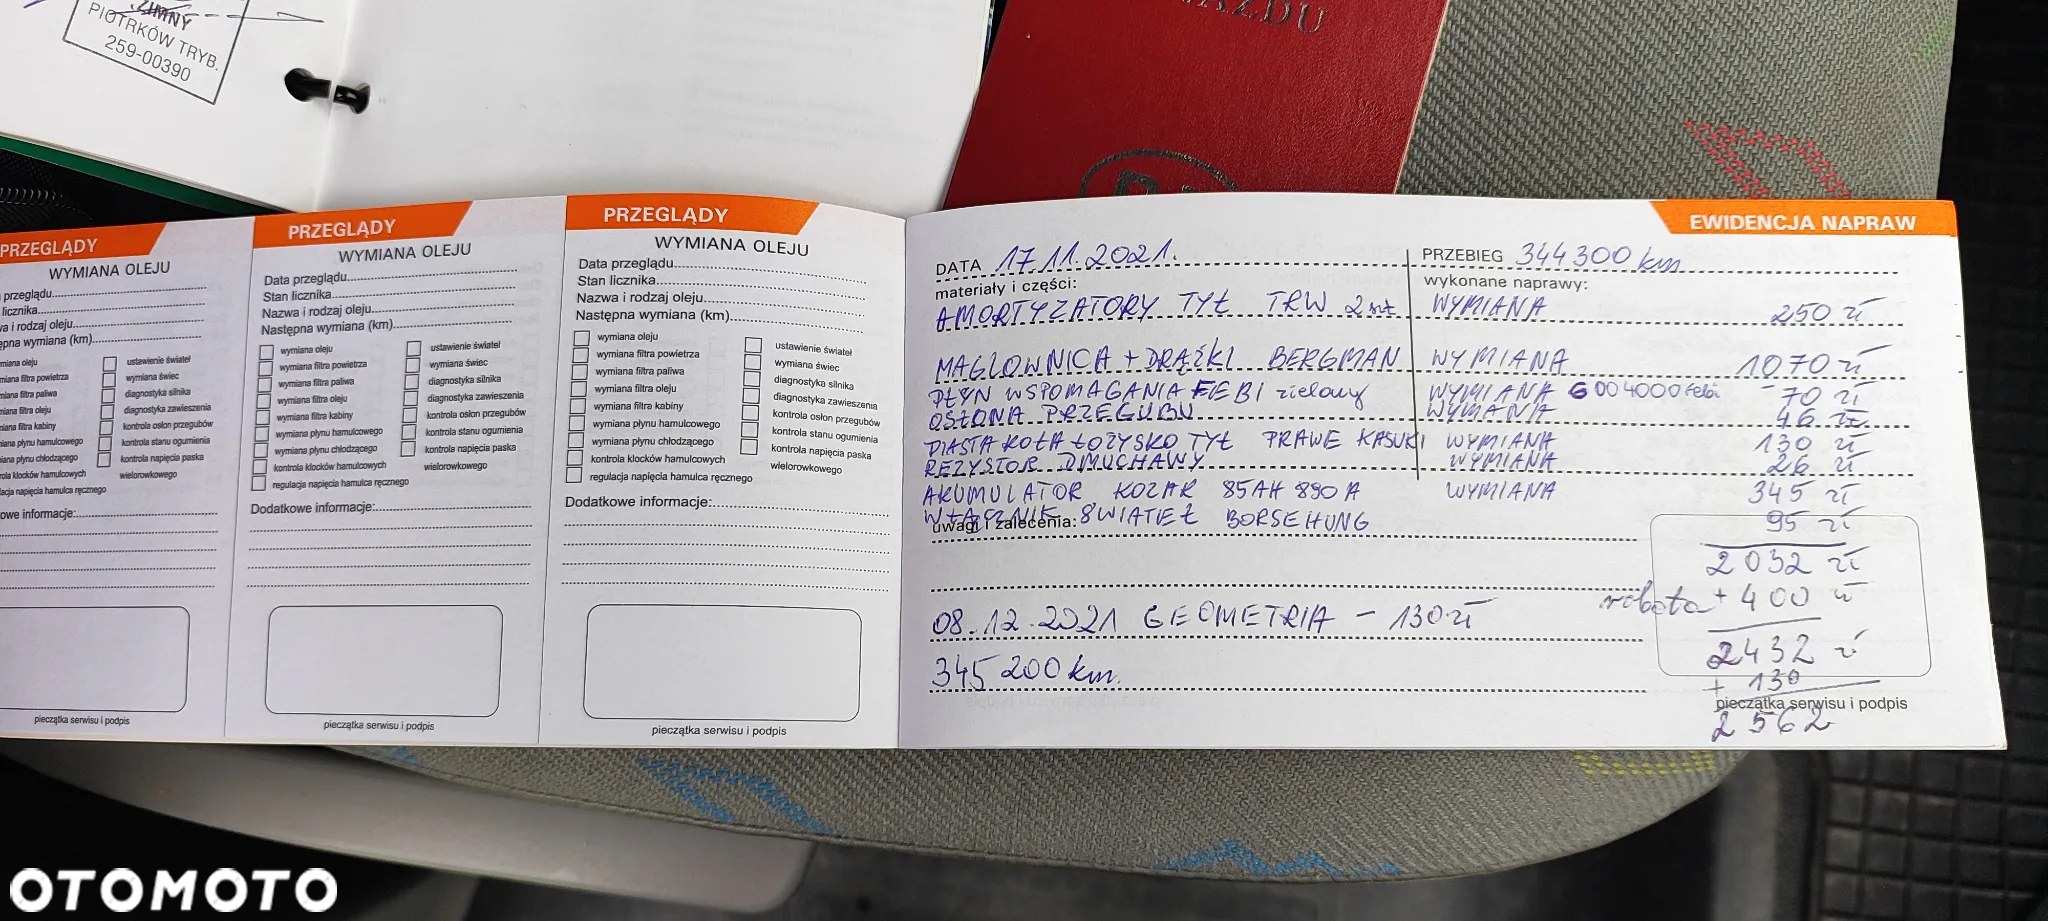 ZIMNY
PIOTRKÓW TRYB.
259-00390
PRZEGLĄDY
WYMIANA OLEJU
przeglądu
licznika
i rodzaj oleju
wymiana (km)
ustawienie świateł
wymiana świec
diagnostyka silnika
diagnostyka zawieszenia
kontrola osłon przegubów
kontrola stanu ogumienia
kontrola napięcia paska
wielorowkowego
informacje:
pieczątka serwisu i podpis
PRZEGLĄDY
WYMIANA OLEJU
Data przeglądu
Stan licznika
Nazwa i rodzaj oleju
Następna wymiana (km)
wymiana oleju
wymiana filtra powietrza
wymiana filtra paliwa
wymiana filtra oleju
wymiana filtra kabiny
wymiana płynu hamulcowego
wymiana płynu chłodzącego
kontrola klocków hamulcowych
regulacja napięcia hamulca ręcznego
ustawienie świateł
wymiana świec
diagnostyka silnika
diagnostyka zawieszenia
kontrola osłon przegubów
kontrola stanu ogumienia
kontrola napięcia paska
wielorowkowego
Dodatkowe informacje:
pieczątka serwisu i podpis
PRZEGLĄDY
WYMIANA OLEJU
Data przeglądu
Stan licznika
Nazwa i rodzaj oleju
Następna wymiana (km)
wymiana oleju
wymiana filtra powietrza
wymiana filtra paliwa
wymiana filtra oleju
wymiana filtra kabiny
wymiana płynu hamulcowego
wymiana płynu chłodzącego
kontrola klocków hamulcowych
regulacja napięcia hamulca ręcznego
ustawienie świateł
wymiana świec
diagnostyka silnika
diagnostyka zawieszenia
kontrola osłon przegubów
kontrola stanu ogumienia
kontrola napięcia paska
wielorowkowego
Dodatkowe informacje:
pieczątka serwisu i podpis
EWIDENCJA NAPRAW
DATA 17.11.2021. PRZEBIEG 344300 km
materiały i części: wykonane naprawy:
AMORTYZATORY TYŁ TRW 2 szt WYMIANA 250 zł
MAGLOWNICA + DRĄŻKI BERGMAN WYMIANA 1070 zł
PŁYN WSPOMAGANIA FEBI zielony WYMIANA G 004000 febi 70 zł
OSŁONA PRZEGUBU WYMIANA 46 zł
PIASTA KOŁA ŁOŻYSKO TYŁ PRAWE KASUKI WYMIANA 130 zł
REZYSTOR DMUCHAWY WYMIANA 26 zł
AKUMULATOR KOZAR 85AH 890A WYMIANA 345 zł
WŁĄCZNIK ŚWIATEŁ BORSEHUNG 95 zł
uwagi i zalecenia:
2032 zł
robota + 400 zł
08.12.2021 GEOMETRIA - 130 zł
2432 zł
345 200 km.
+ 130
pieczątka serwisu i podpis
2562
OTOMOTO